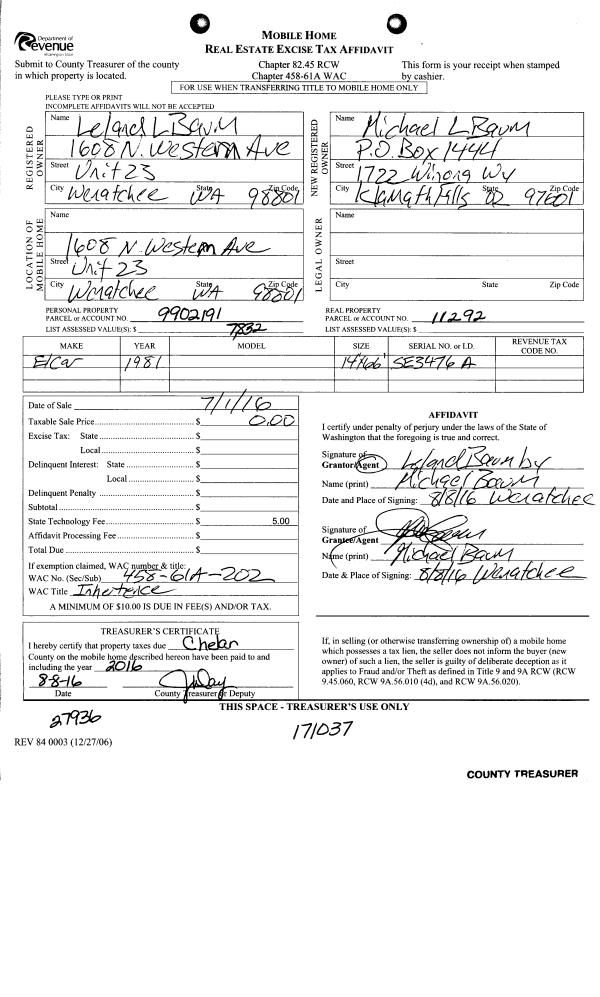 Department of
Revenue
Washington State
MOBILE HOME
REAL ESTATE EXCISE TAX AFFIDAVIT
Submit to County Treasurer of the county
in which property is located.
Chapter 82.45 RCW
Chapter 458-61A WAC
This form is your receipt when stamped
by cashier.
FOR USE WHEN TRANSFERRING TITLE TO MOBILE HOME ONLY
PLEASE TYPE OR PRINT
INCOMPLETE AFFIDAVITS WILL NOT BE ACCEPTED
REGISTERED OWNER
Name Leland L Baum
1608 N. Western Ave
Street Unit 23
City Wenatchee State WA Zip Code 98801
NEW REGISTERED OWNER
Name Michael L Baum
P.O. Box 1444
Street 1722 Winona Wy
City Klamath Falls State Zip Code 97601
LOCATION OF MOBILE HOME
Name
1608 N. Western Ave
Street Unit 23
City Wenatchee State WA Zip Code 98801
LEGAL OWNER
Name
Street
City State Zip Code
PERSONAL PROPERTY
PARCEL or ACCOUNT NO. 9902191
LIST ASSESSED VALUE(S): $ 7832
REAL PROPERTY
PARCEL or ACCOUNT NO. 11292
LIST ASSESSED VALUE(S): $
MAKE YEAR MODEL SIZE SERIAL NO. or I.D. REVENUE TAX CODE NO.
Elcar 1981 14x66 SE3476 A
Date of Sale 7/1/16
Taxable Sale Price $ 0.00
Excise Tax: State $
Local $
Delinquent Interest: State $
Local $
Delinquent Penalty $
Subtotal $
State Technology Fee $ 5.00
Affidavit Processing Fee $
Total Due $
If exemption claimed, WAC number & title:
WAC No. (Sec/Sub) 458-61A-202
WAC Title Inheritence
A MINIMUM OF $10.00 IS DUE IN FEE(S) AND/OR TAX.
AFFIDAVIT
I certify under penalty of perjury under the laws of the State of
Washington that the foregoing is true and correct.
Signature of
Grantor/Agent Leland Baum by
Name (print) Michael Baum
Date and Place of Signing: 8/8/16 Wenatchee
Signature of
Grantee/Agent
Name (print) Michael Baum
Date & Place of Signing: 8/8/16 Wenatchee
TREASURER'S CERTIFICATE
I hereby certify that property taxes due Chelan
County on the mobile home described hereon have been paid to and
including the year 2016
8-8-16
Date County Treasurer or Deputy
If, in selling (or otherwise transferring ownership of) a mobile home
which possesses a tax lien, the seller does not inform the buyer (new
owner) of such a lien, the seller is guilty of deliberate deception as it
applies to Fraud and/or Theft as defined in Title 9 and 9A RCW (RCW
9.45.060, RCW 9A.56.010 (4d), and RCW 9A.56.020).
THIS SPACE - TREASURER'S USE ONLY
27936
171037
REV 84 0003 (12/27/06)
COUNTY TREASURER